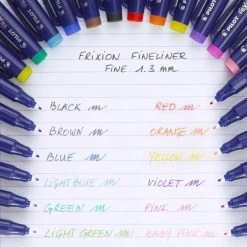 FRIXION FINELINER
FINE 1.3 mm
BLACK m RED m
BROWN m ORANGE m
BLUE m YELLOW m
LIGHT BLUE m VIOLET m
GREEN m PINK m
LIGHT GREEN m BABY PINK m
PILOT
PILOT